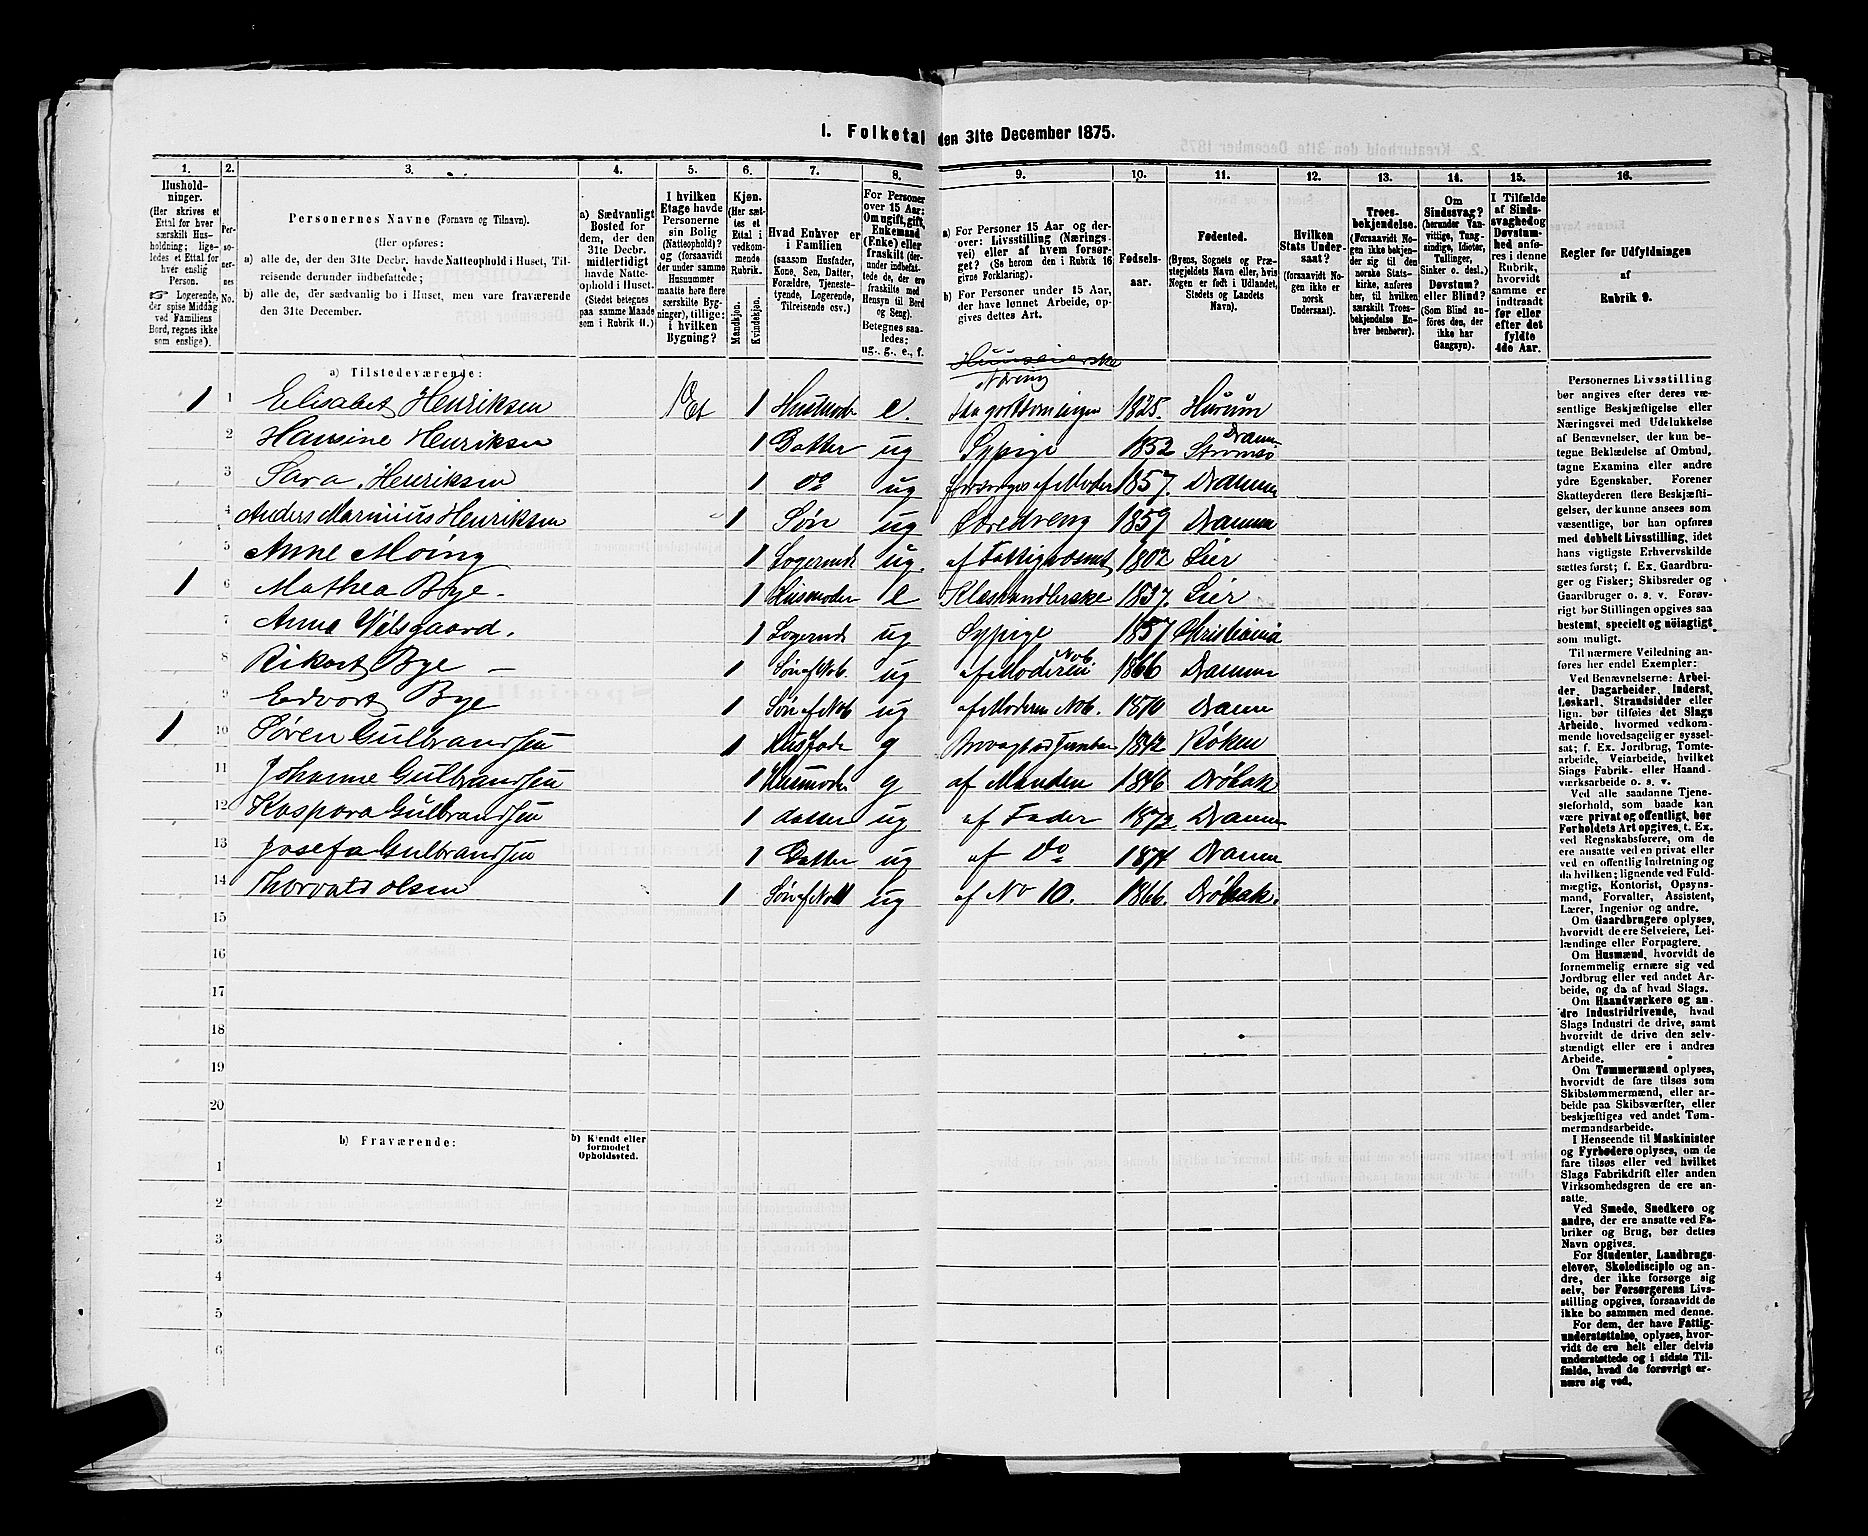 1. Folketal den 31te December 1875.
1. 2. 3. 4. 5. 6. 7. 8. 9. 10. 11. 12. 13. 14. 15. 16.
Hushold-
ninger.
(Her skrives et
Ettal for hver
særskilt Hus-
holdning; lige-
ledes et Ettal for
hver enslig
Person.
☞ Logerende,
der spise Middag
ved Familiens
Bord, regnes ikke
som enslige).
Per-
so-
ner-
nes
No.
Personernes Navne (Fornavn og Tilnavn).
(Her opføres:
a) alle de, der den 31te Decbr. havde Natteophold i Huset, Til-
reisende derunder indbefattede;
b) alle de, der sædvanlig bo i Huset, men vare fraværende
den 31te December.
a) Sædvanligt
Bosted for
dem, der den
31te Decbr.
midlertidigt
havde Natte-
ophold i Huset.
(Stedet betegnes
paa samme Maade
som i Rubrik 11.)
I hvilken
Etage havde
Personerne
sin Bolig
(Natteophold)?
og (forsaavidt
der under samme
Husnummer
maatte høre flere
særskilte Byg-
ninger), tillige:
i hvilken
Bygning?
Kjøn.
(Her sæt-
tes et
Ettal i
vedkom-
mende
Rubrik.
Mandkjøn.
Kvindekjøn.
Hvad Enhver er
i Familien
(saasom Husfader,
Kone, Søn, Datter,
Forældre, Tjeneste-
tyende, Logerende,
Tilreisende osv.)
For Personer
over 15 Aar:
Om ugift, gift,
Enkemand
(Enke) eller
fraskilt (der-
under indbefat-
tede de, der ere
fraskilte med
Hensyn til Bord
og Seng).
Betegnes saa-
ledes:
ug., g., e., f.
a) For Personer 15 Aar og der-
over: Livsstilling (Nærings-
vei) eller af hvem forsør-
get? (Se herom den i Rubrik 16
givne Forklaring).
b) For Personer under 15 Aar,
der have lønnet Arbeide, op-
gives dettes Art.
Fødsels-
aar.
Fødested.
(Byens, Sognets og Præ-
stegjeldets Navn eller, hvis
Nogen er født i Udlandet,
Stedets og Landets
Navn).
Hvilken
Stats Under-
saat?
(forsaavidt No-
gen ikke er
norsk
Undersaat).
Troes-
bekjendelse.
(Forsaavidt No-
gen ikke bekjen-
der sig til den
norske Stats-
kirke, anføres
her, til hvilken
særskilt Troes-
bekjendelse En-
hver henhører).
Om
Sindssvag?
(herunder Van-
vittige, Tung-
sindige, Idioter,
Tullinger,
Sinker o. desl.)
Døvstum?
eller Blind?
(Som Blind an-
føres den, der
ikke har
Gangsyn).
I Tilfælde
af Sinds-
svaghed og
Døvstum-
hed anfø-
res i denne
Rubrik,
hvorvidt
samme er
indtraadt
før eller
efter det
fyldte
4de Aar.
Regler for Udfyldningen
af
Rubrik 9.
a) Tilstedeværende:
Huuseierske
Næring
1 1 Elisabet Henriksen Et 1 Husmod e. 1825. Hurum
2 Hansine Henriksen 1 Datter ug Sypige 1852 Dramm Strømsø
3 Sara Henriksen 1 do ug forsørges af Moder 1857. Dramm
4 Anders Marinius Henriksen 1 Søn ug 1859 Dramm
5 Anne Moing 1 Logerend ug. af Fattigvæsnet 1802 Lier
1 6 Mathea Bye - 1 Husmoder e Kleshandlerske 1837. Lier
7 Anna Velsgaard. 1 Logerend ug Sypige 1857 Christiania
8 Rikart Bye - 1 Søn af No 6. ug af Moderen No 6 1866 Dramm
9 Edvort Bye 1 Søn af No 6 ug af Moderen No 6. 1870 Dramm
1 10 Søren Gulbrandsen 1 Husfade g 1842 Røken
11 Johanne Gulbrandsen 1 Husmoder g af Manden 1846 Drøbak
12 Kaspara Gulbrandsen 1 datter ug af Fader 1872 Dramm
13 Josefa Gulbrandsen 1 Datter ug af Do 1874 Dramm
14 Thorvald olsen 1 Søn af No 11 ug af No 10. 1866. Drøbak.
15
16
17
18
19
20
b) Fraværende:
b) Kjendt eller
formodet
Opholdssted.
1
2
3
4
5
6
Personernes Livsstilling
bør angives efter deres væ-
sentlige Beskjæftigelse eller
Næringsvei med Udelukkelse
af Benævnelser, der kun be-
tegne Beklædelse af Ombud,
tagne Examina eller andre
ydre Egenskaber. Forener
Skatteyderen flere Beskjæfti-
gelser, der kunne ansees som
væsentlige, bør han opføres
med dobbelt Livsstilling, idet
hans vigtigste Erhvervskilde
sættes først; f. Ex. Gaardbru-
ger og Fisker; Skibsreder og
Gaardbruger o. s. v. Forøv-
rigt bør Stillingen opgives saa
bestemt, specielt og nøiagtigt
som muligt.
Til nærmere Veiledning an-
føres her endel Exempler:
Ved Benævnelserne: Arbei-
der, Dagarbeider, Inderst,
Løskarl, Strandsidder eller
lign. bør tilføies det Slags
Arbeide, hvormed vedkom-
mende hovedsagelig er syssel-
sat; f. Ex. Jordbrug, Tomte-
arbeide, Veiarbeide, hvilket
Slags Fabrik- eller Haand-
værksarbeide o. s. v.
Ved alle saadanne Tjene-
steforhold, som baade kan
være privat og offentligt, bør
Forholdets Art opgives, t. Ex.
ved Regnskabsførere, om de
ere ansatte ved en privat eller
ved en offentlig Indretning og
da hvilken; lignende ved Fuld-
mægtig, Kontorist, Opsyns-
mand, Forvalter, Assistent,
Lærer, Ingeniør og andre.
Om Gaardbrugere oplyses,
hvorvidt de ere Selveiere, Lei-
lændinge eller Forpagtere.
Om Husmænd, hvorvidt de
fornemmelig ernære sig ved
Jordbrug eller ved andet Ar-
beide, og da af hvad Slags.
Om Haandværkere og an-
dre Industridrivende, hvad
Slags Industri de drive, samt
hvorvidt de drive den selv-
stændigt eller ere i andres
Arbeide.
Om Tømmermænd oplyses,
hvorvidt de fare tilsøs som
Skibstømmermænd, eller ar-
beide paa Skibsværfter, eller
beskjæftiges ved andet Tøm-
mermandsarbeide.
I Henseende til Maskinister
og Fyrbødere oplyses, om de
fare tilsøs eller ved hvilket
Slags Fabrikdrift eller anden
Virksomhedsgren de ere an-
satte.
Ved Smede, Snedkere og
andre, der ere ansatte ved Fa-
briker og Brug, bør dettes
Navn opgives.
For Studenter, Landbrugs-
elever, Skoledisciple og an-
dre, der ikke forsørge sig
selv, bør Forsørgerens Livs-
stilling opgives, forsaavidt de
ikke bo sammen med denne.
For dem, der have Fattig-
understøttelse, oplyses, hvor-
vidt de ere helt eller delvis
understøttede og i sidste Til-
fælde, hvad de forøvrigt er-
nære sig ved.